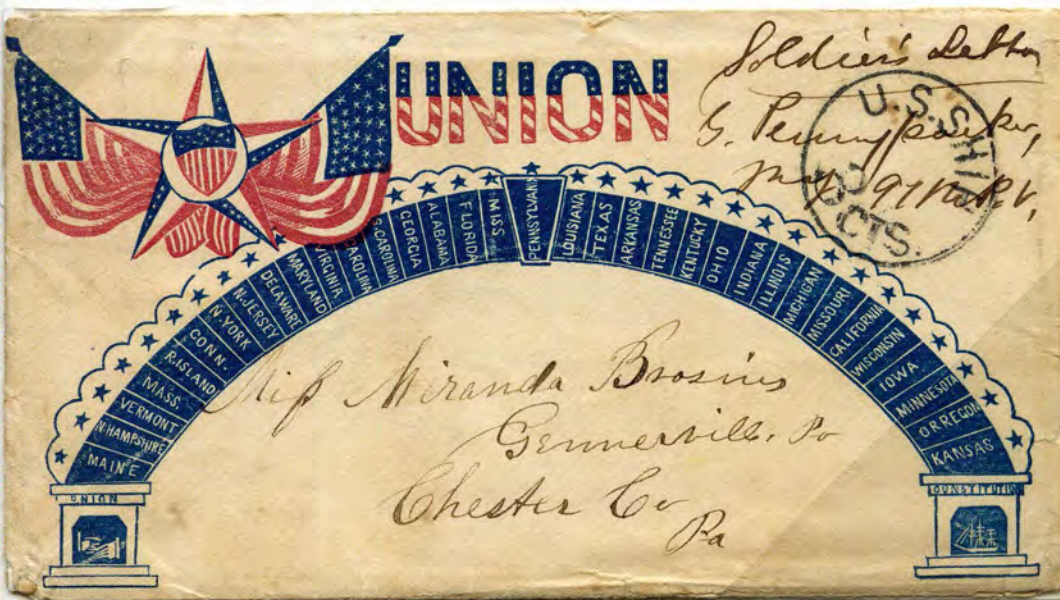 UNION
Soldier's Letter
G. Pennypacker,
Maj 97th P.V.
U.S. SHIP
3 CTS.
MAINE
N. HAMPSHIRE
VERMONT
MASS.
R. ISLAND
CONN.
N. YORK
N. JERSEY
DELAWARE
MARYLAND
VIRGINIA
CAROLINA
S. CAROLINA
GEORGIA
ALABAMA
FLORIDA
MISS
PENNSYLVANIA
LOUISIANA
TEXAS
ARKANSAS
TENNESSEE
KENTUCKY
OHIO
INDIANA
ILLINOIS
MICHIGAN
MISSOURI
CALIFORNIA
WISCONSIN
IOWA
MINNESOTA
ORREGON
KANSAS
Miß Miranda Brosius
Chester Co
Pa
UNION
CONSTITUTION